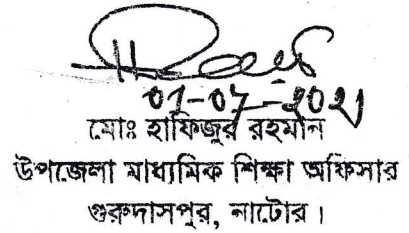 01-07-2021
মোঃ হাফিজুর রহমান
উপজেলা মাধ্যমিক শিক্ষা অফিসার
গুরুদাসপুর, নাটোর।